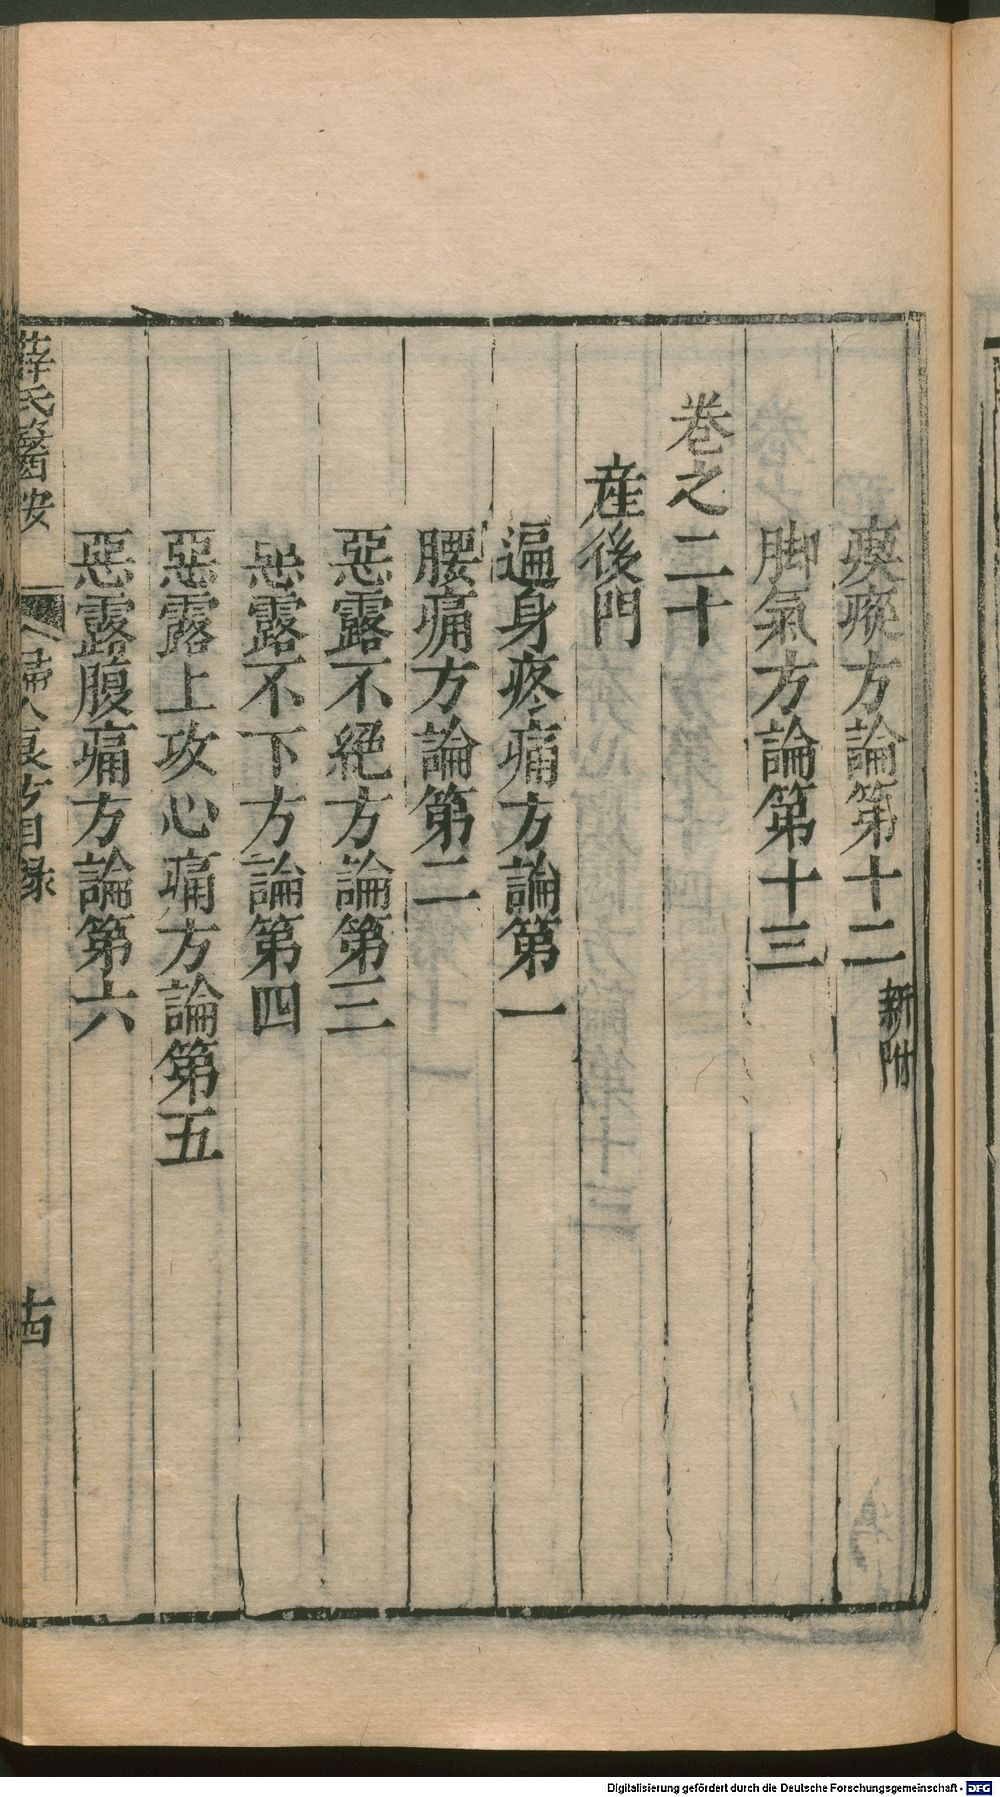 瘈瘲方論第十二 新附
脚氣方論第十三
卷之二十
産後門
遍身疼痛方論第一
腰痛方論第二
惡露不絕方論第三
惡露不下方論第四
惡露上攻心痛方論第五
惡露腹痛方論第六
薛氏醫按 婦人良方目録 十四
Digitalisierung gefördert durch die Deutsche Forschungsgemeinschaft - DFG